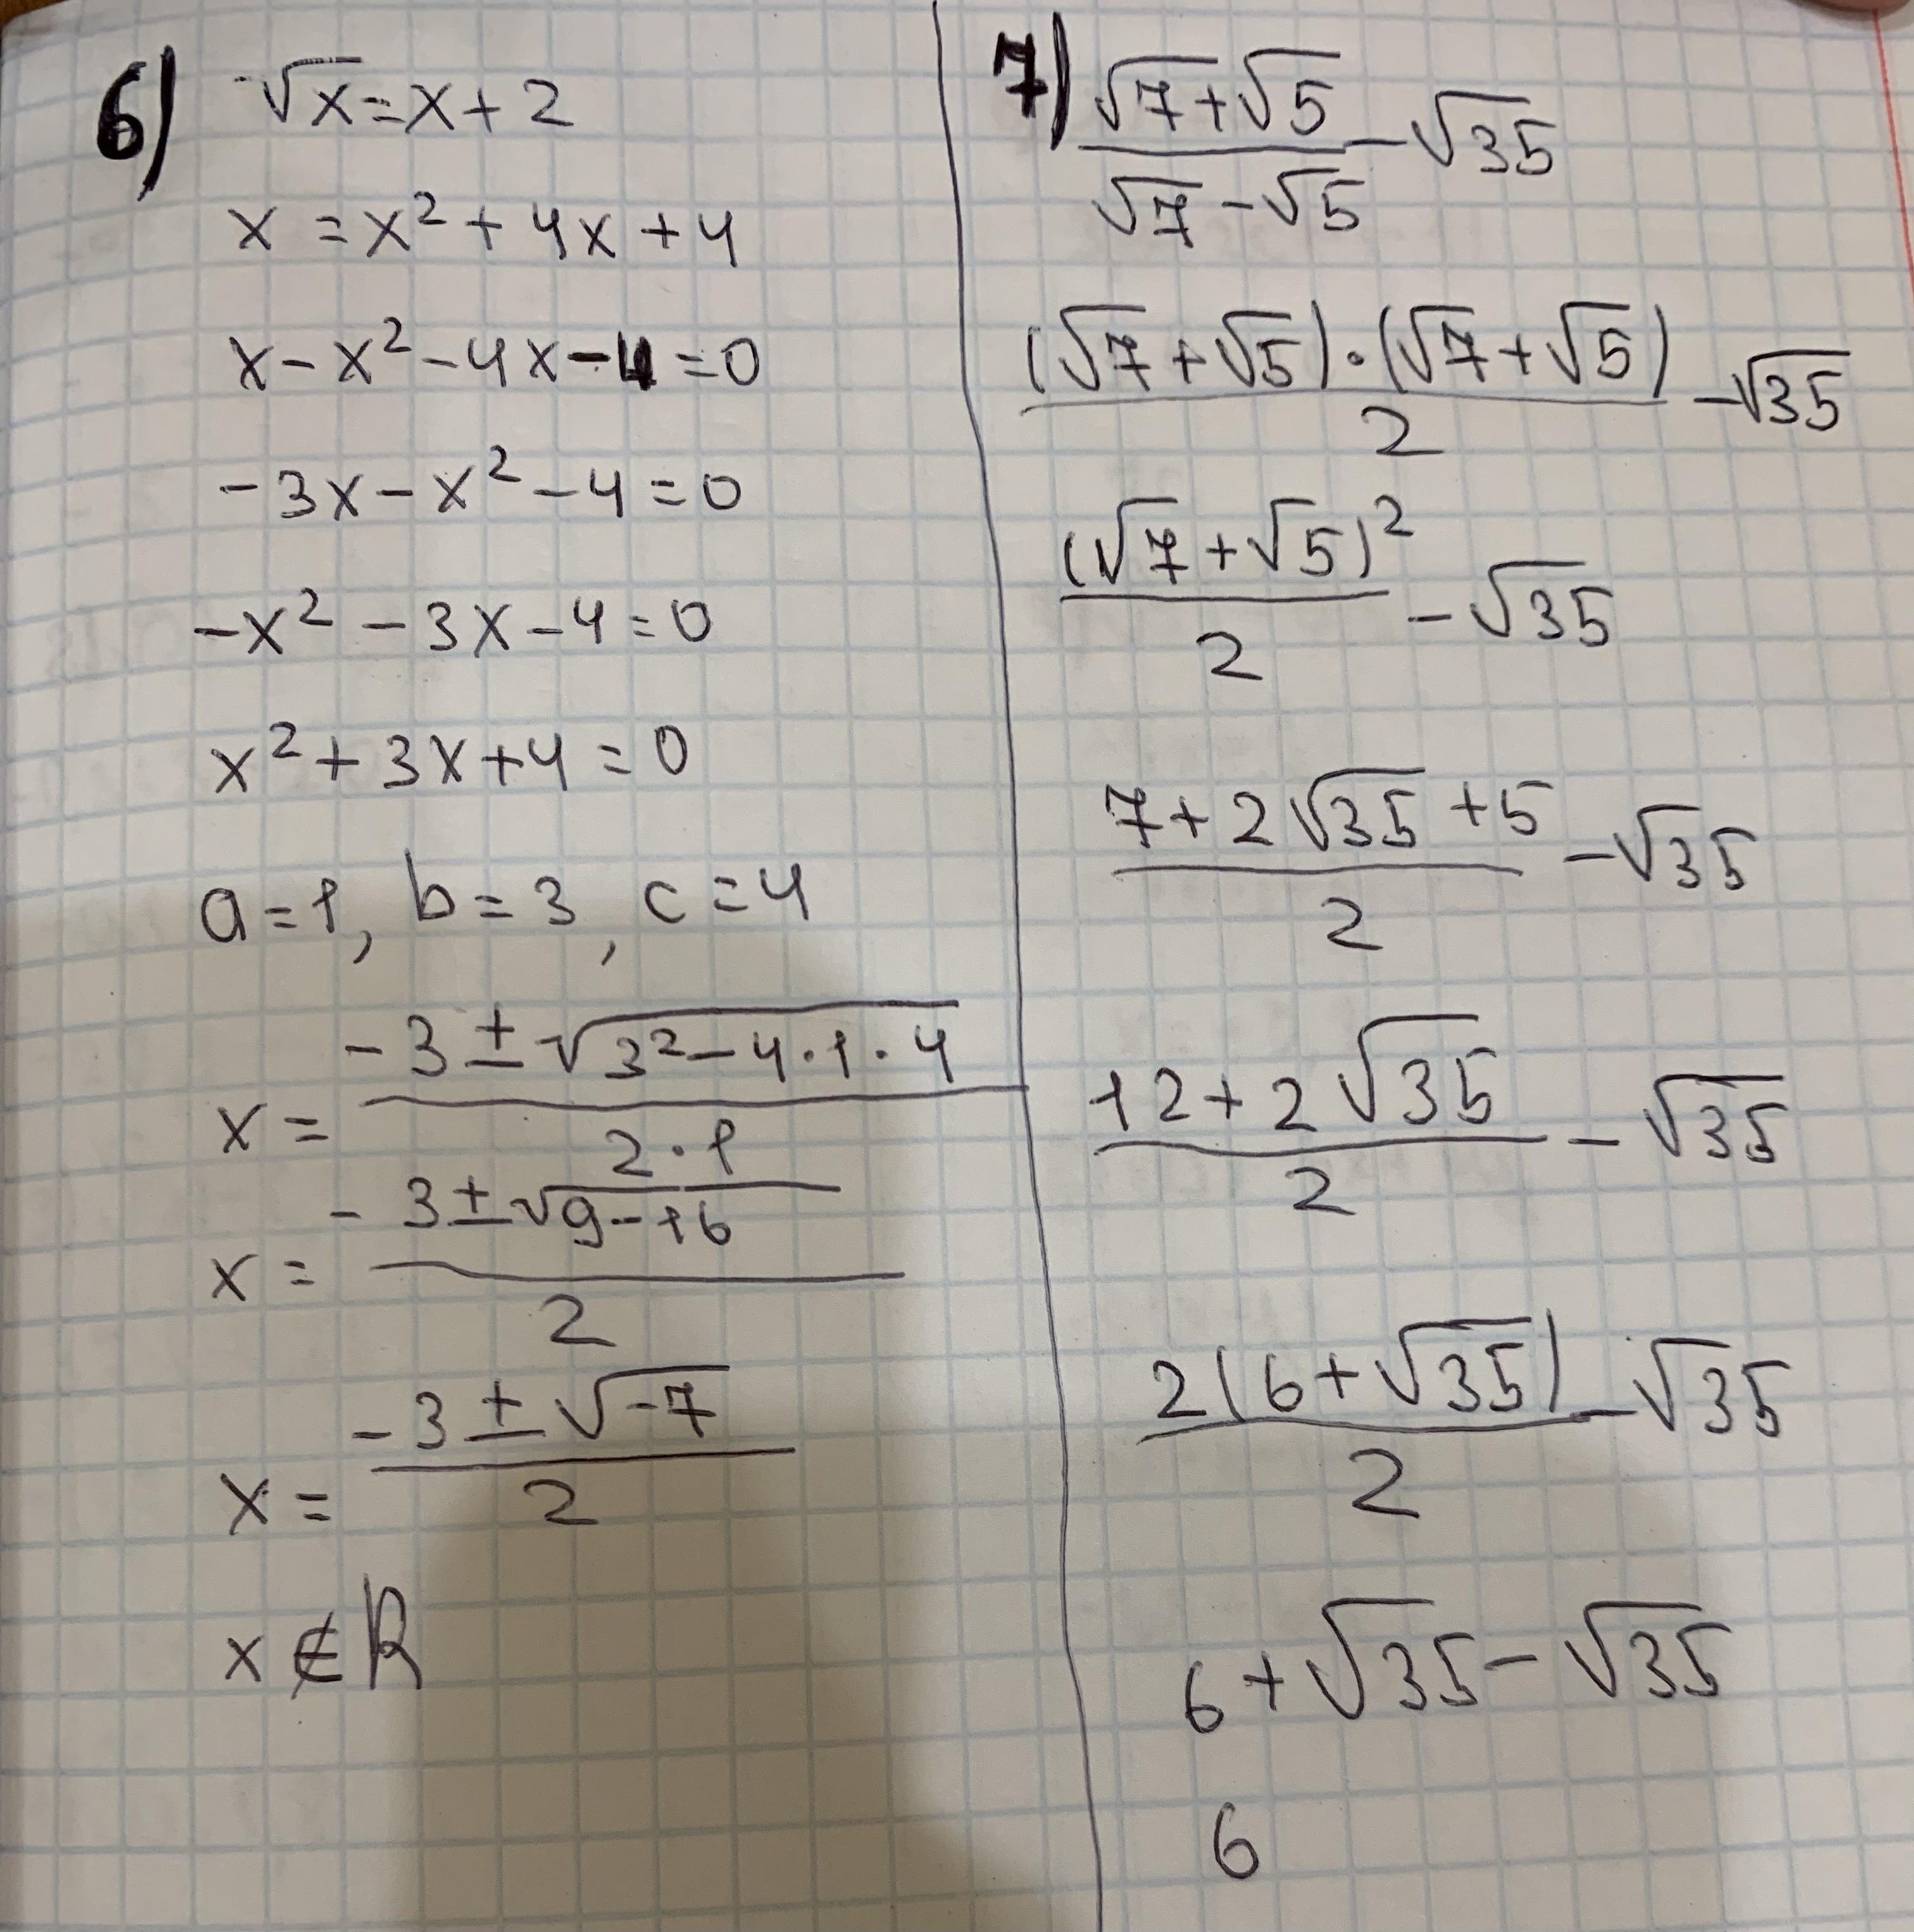 6) √x = x + 2
x = x² + 4x + 4
x - x² - 4x - 4 = 0
-3x - x² - 4 = 0
-x² - 3x - 4 = 0
x² + 3x + 4 = 0
a = 1, b = 3, c = 4
x = (-3 ± √(3² - 4·1·4)) / (2·1)
x = (-3 ± √(9 - 16)) / 2
x = (-3 ± √(-7)) / 2
x ∉ R
7) (√7 + √5) / (√7 - √5) - √35
((√7 + √5)·(√7 + √5)) / 2 - √35
(√7 + √5)² / 2 - √35
(7 + 2√35 + 5) / 2 - √35
(12 + 2√35) / 2 - √35
2(6 + √35) / 2 - √35
6 + √35 - √35
6